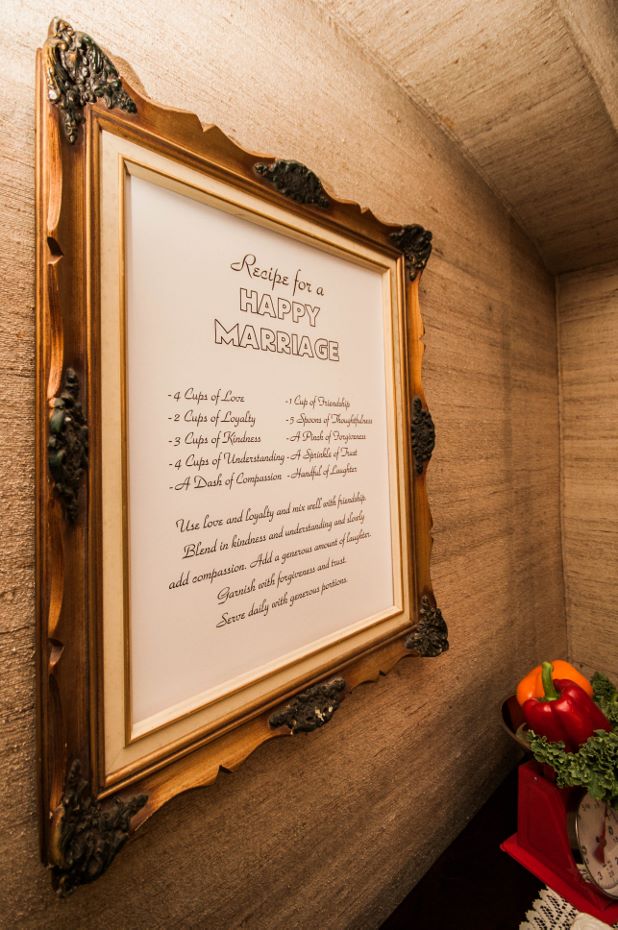 Recipe for a
HAPPY
MARRIAGE
-4 Cups of Love
-2 Cups of Loyalty
-3 Cups of Kindness
-4 Cups of Understanding
-A Dash of Compassion
-1 Cup of Friendship
-5 Spoons of Thoughtfulness
-A Pinch of Forgiveness
-A Sprinkle of Trust
-Handful of Laughter
Use love and loyalty and mix well with friendship.
Blend in kindness and understanding and slowly
add compassion. Add a generous amount of laughter.
Garnish with forgiveness and trust.
Serve daily with generous portions.